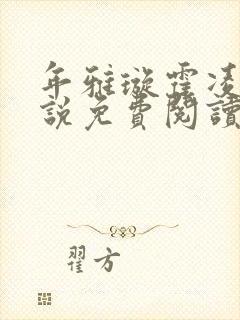 年雅璇霍凌
說免費閱讀
翟方